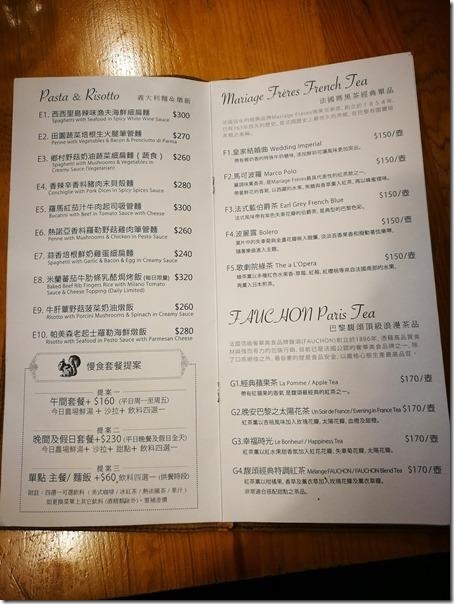 Pasta & Risotto 義大利麵&燉飯
E1. 西西里島辣味漁夫海鮮細扁麵 $300
Spaghetti with Seafood in Spicy White Wine Sauce
E2. 田園蔬菜培根生火腿筆管麵 $270
Penne with Vegetables & Bacon & Prosciutto di Parma
E3. 鄉村野菇奶油蔬菜細扁麵 ( 蔬食 ) $260
Spaghetti with Mushrooms & Vegetables in Creamy Sauce (Vegetarian)
E4. 香辣辛香料豬肉末貝殼麵 $280
Conchiglie with Pork Dices in Spicy Spices Sauce
E5. 羅馬紅茄汁牛肉起司吸管麵 $300
Bucatini with Beef in Tomato Sauce with Cheese
E6. 熱諾亞香料羅勒野菇雞肉筆管麵 $260
Penne with Mushrooms & Chicken in Pesto Sauce
E7. 蒜香培根鮮奶雞蛋細扁麵 $240
Spaghetti with Garlic & Bacon & Egg in Creamy Sauce
E8. 米蘭蕃茄牛肋條乳酪焗烤飯 (每日限量) $320
Baked Beef Rib Fingers Rice with Milano Tomato Sauce & Cheese Topping (Daily Limited)
E9. 牛肝蕈野菇菠菜奶油燉飯 $260
Risotto with Porcini Mushrooms & Spinach in Creamy Sauce
E10. 帕美森老起士羅勒海鮮燉飯 $280
Risotto with Seafood in Pesto Sauce with Parmesan Cheese
慢食套餐提案
提案一
午間套餐+ $160 (平日周一至周五)
今日農場鮮湯 + 沙拉+ 飲料四選一
提案二
晚間及假日套餐+$230 (平日晚餐及假日全天)
今日農場鮮湯+ 沙拉+ 甜點+ 飲料四選一
提案三
單點 主餐/ 麵飯 +$60,飲料四選一 (供餐時段)
附註：四選一可選飲料 ( 美式咖啡 / 冰紅茶 / 熱法國茶 / 果汁 )
如更換菜單上其它飲料 (酒精類除外)，需補差價
Mariage Frères French Tea
法國瑪黑茶經典單品
F1.皇家結婚曲 Wedding Imperial $150/壺
F2.馬可波羅 Marco Polo $150/壺
F3.法式藍伯爵茶 Earl Grey French Blue $150/壺
F4.波麗露 Bolero $150/壺
F5.歌劇院綠茶 The a L'Opera $150/壺
FAUCHON Paris Tea
巴黎馥頌頂級浪漫茶品
G1.經典蘋果茶 La Pomme / Apple Tea $170/壺
G2.晚安巴黎之太陽花茶 Un Soir de France / Evening in France Tea $170/壺
G3.幸福時光 Le Bonheur / Happiness Tea $170/壺
G4.馥頌經典特調紅茶 Mélange FAUCHON / FAUCHON Blend Tea $170/壺
非常適合搭配甜點之茶品。